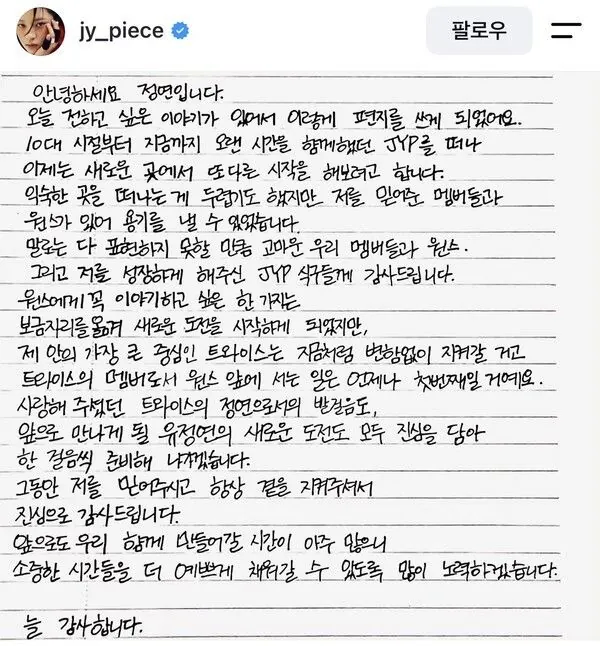 jy_piece
팔로우
안녕하세요 정연입니다.
오늘 전하고 싶은 이야기가 있어서 이렇게 편지를 쓰게 되었어요.
10대 시절부터 지금까지 오랜 시간을 함께했던 JYP를 떠나
이제는 새로운 곳에서 또다른 시작을 해보려고 합니다.
익숙한 곳을 떠나는 게 두렵기도 했지만 저를 믿어준 멤버들과
원스가 있어 용기를 낼 수 있었습니다.
말로는 다 표현하지 못할 만큼 고마운 우리 멤버들과 원스.
그리고 저를 성장하게 해주신 JYP 식구들께 감사드립니다.
원스에게 꼭 이야기하고 싶은 한 가지는
보금자리를 옮겨 새로운 도전을 시작하게 되었지만,
제 안의 가장 큰 중심인 트와이스는 지금처럼 변함없이 지켜갈 거고
트와이스의 멤버로서 원스 앞에 서는 일은 언제나 첫번째일 거예요.
사랑해 주셨던 트와이스의 정연으로서의 발걸음도,
앞으로 만나게 될 유정연의 새로운 도전도 모두 진심을 담아
한 걸음씩 준비해 나가겠습니다.
그동안 저를 믿어주시고 항상 곁을 지켜주셔서
진심으로 감사드립니다.
앞으로도 우리 함께 만들어갈 시간이 아주 많으니
소중한 시간들을 더 예쁘게 채워갈 수 있도록 많이 노력하겠습니다.
늘 감사합니다.